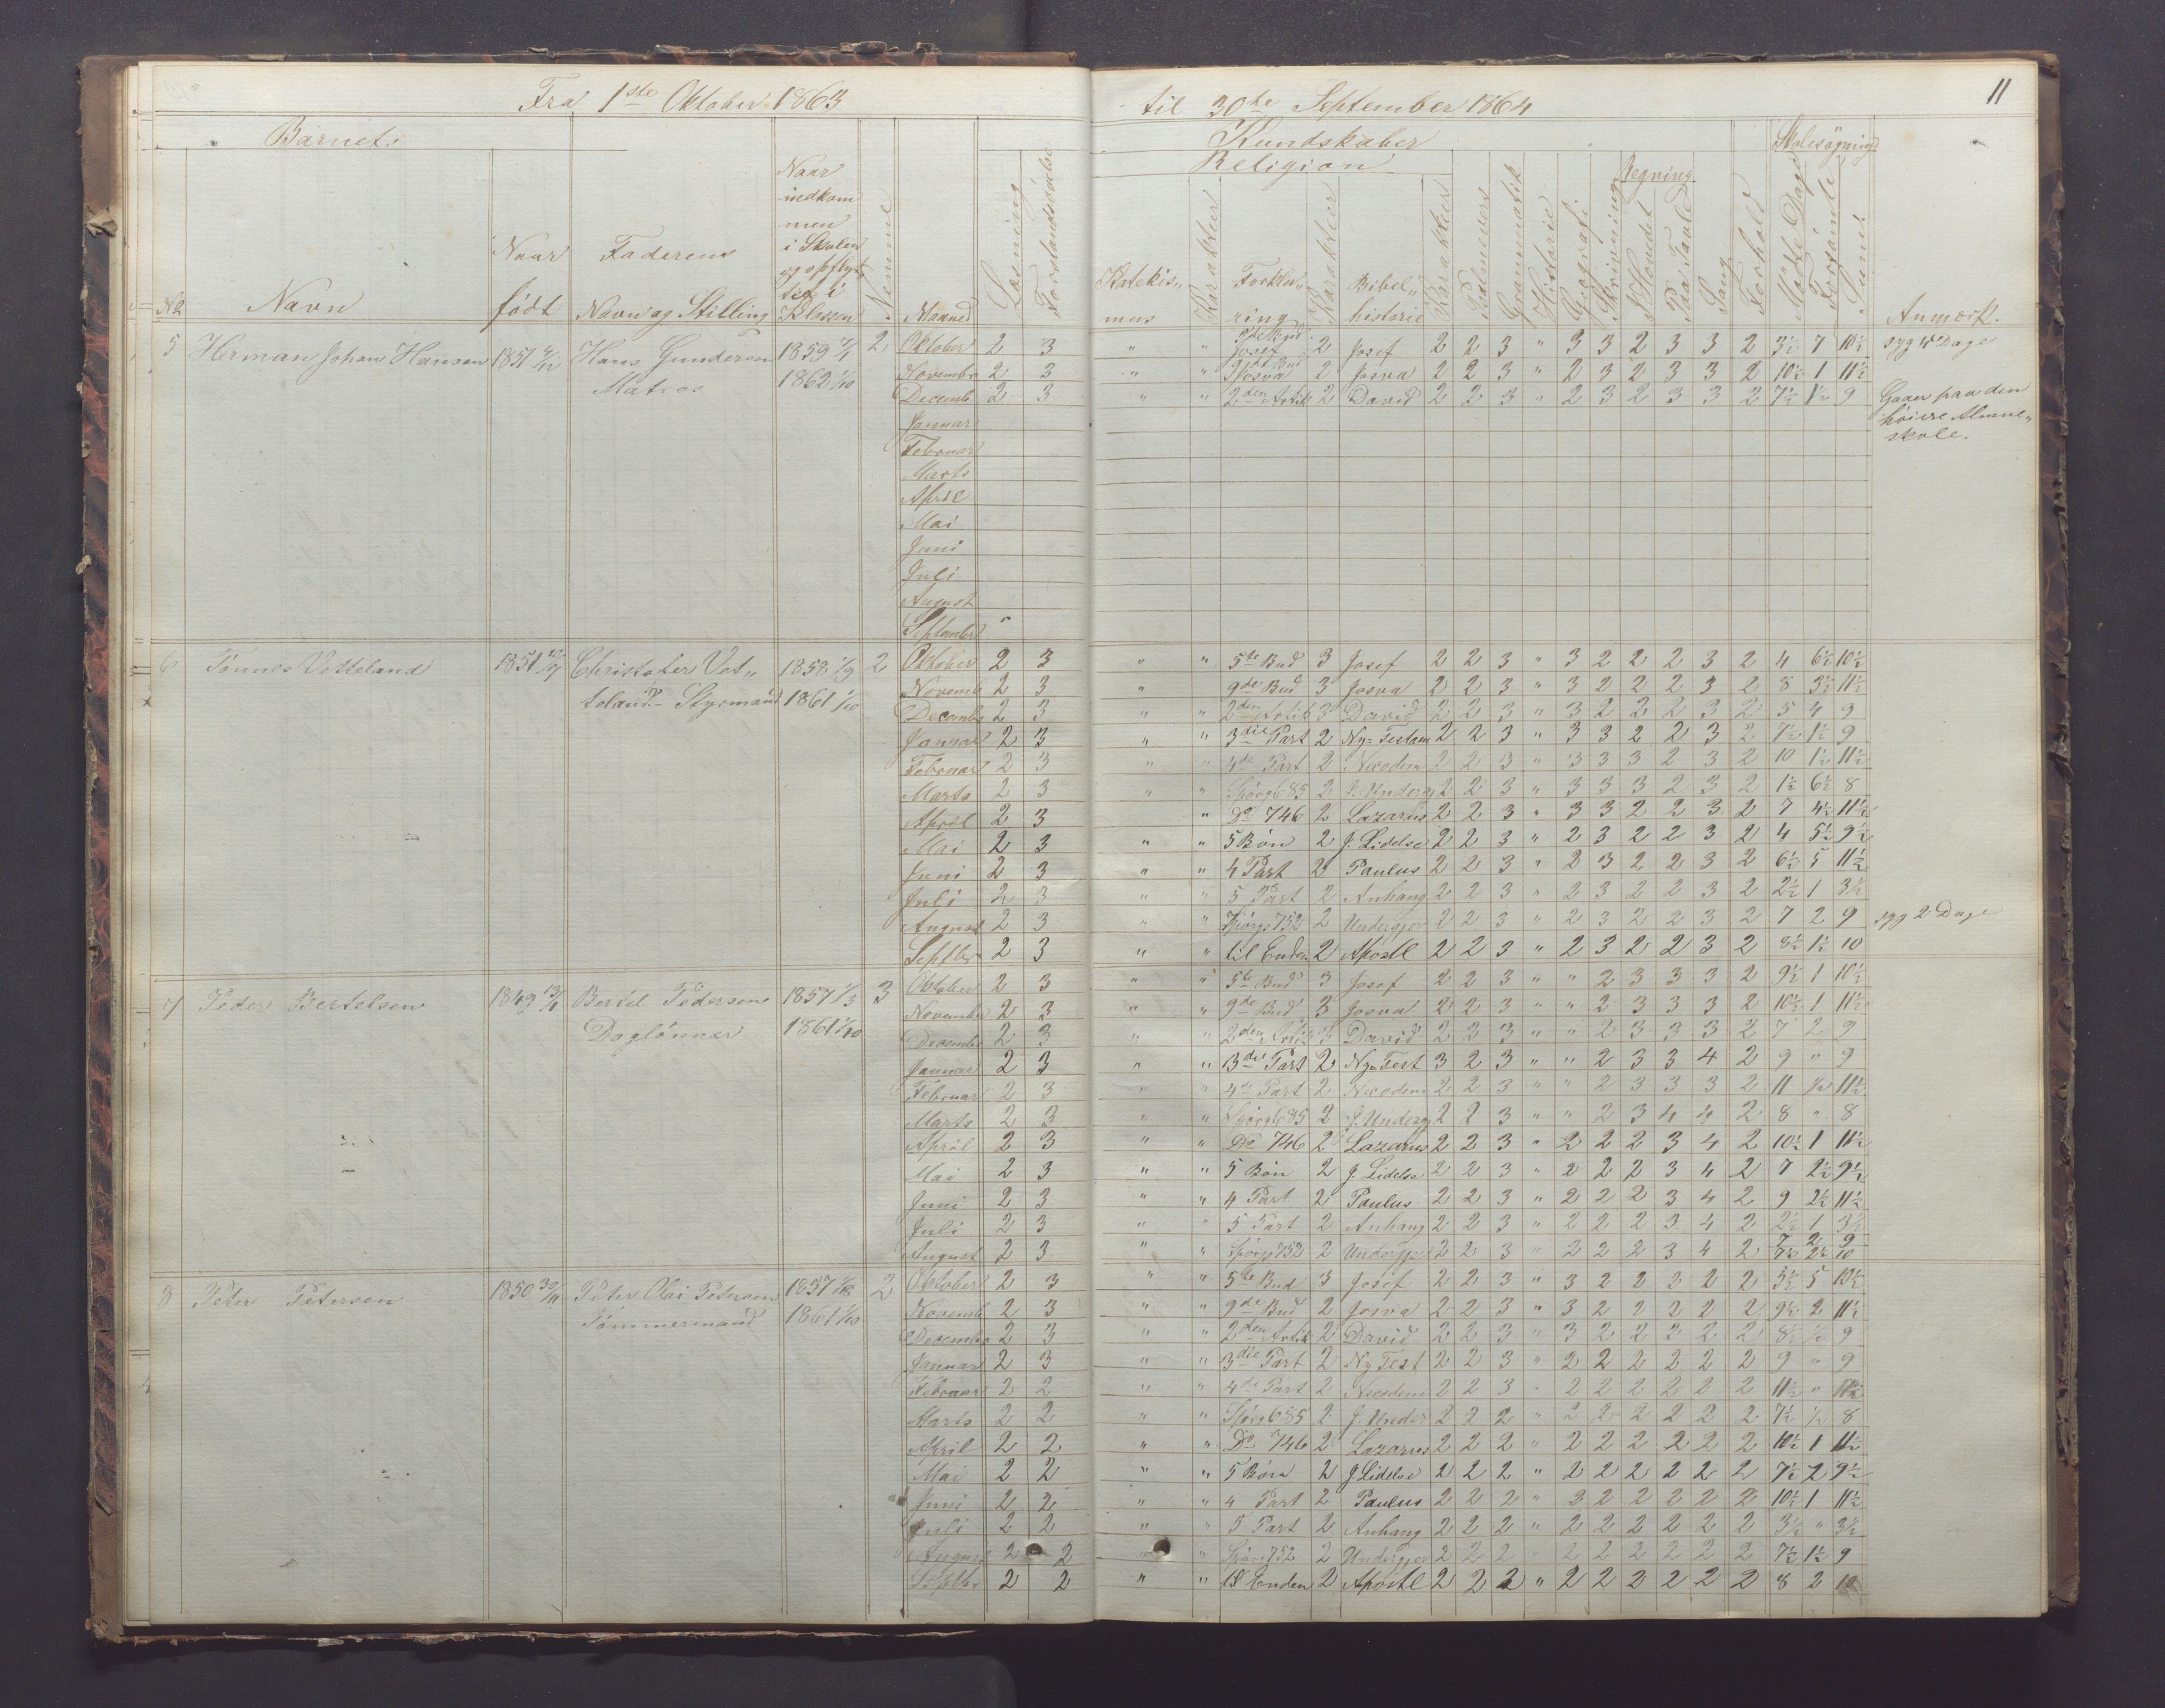 Fra 1ste Oktober 1863 til 30te September 1864 11
Barnets Kundskaber Skolesøgning
Religion Regning
No Navn Naar født Faderens Navn og Stilling Naar indkommen i Skolen og opflyttet i Klassen Nemme Maaned Læsning Forstandsøvelse Katekismus Karakter Forklaring Karakter Bibelhistorie Karakter Psalmevers Grammatik Historie Geografi Skrivning I Hovedet Paa Tavle Sang Forhold Mødte Dage Forsømte Sum Anmærk.
5 Herman Johan Hansen 1851 Hans Gundersen Matros 1859 1862 1/10 2
Oktober 2 3 " " Josef 2 Josef 2 2 3 " 3 3 2 3 3 2 3½ 7 10½ syg 4 Dage
Novembr 2 3 " " 9de Bud Josva 2 Josva 2 2 3 " 2 3 2 3 3 2 10½ 1 11½
Decemb 2 3 " " 2den Artik 2 David 2 2 3 " 2 3 2 3 3 2 7½ 1½ 9 Gaaer paa den høiere Almueskole.
Januar
Februar
Marts
April
Mai
Juni
Juli
August
September
6 Tönnes Vetteland 1851 Christofer Vetteland - Styrmand 1858 1/9 1861 1/10 2
Oktober 2 3 " " 5te Bud 3 Josef 2 2 3 " 3 2 2 2 3 2 4 6½ 10½
Novemb 2 3 " " 9de Bud 3 Josva 2 2 3 " 3 2 2 2 3 2 8 3½ 11½
Decembr 2 3 " " 2den Artik 3 David 2 2 3 " 3 2 2 2 3 2 5 4 9
Januar 2 3 " " 3die Part 2 Ny-Testam 2 2 3 " 3 3 2 2 3 2 7½ 1½ 9
Februar 2 3 " " 4de Part 2 Nicodem 2 2 3 " 3 3 3 2 3 2 10 1½ 11½
Marts 2 3 " " Spörg 685 2 J. Underg 2 2 3 " 3 3 3 2 3 2 1½ 6½ 8
April 2 3 " Do 746 2 Lazarus 2 2 3 " 3 3 2 2 3 2 7 4½ 11½
Mai 2 3 " " 5 Bön 2 J. Lidelse 2 2 3 " 2 3 2 2 3 2 4 5½ 9½
Juni 2 3 " " 4 Part 2 Paulus 2 2 3 " 2 3 2 2 3 2 6½ 5 11½
Juli 2 3 " " 5 Part 2 Anhang 2 2 3 " 2 3 2 2 3 2 2½ 1 3½
August 2 3 " " Spörg 752 2 Undergjer 2 2 3 " 2 3 2 2 3 2 7 2 9 syg 2 Dage
Septbr 2 3 " " til Enden 2 Apostl 2 2 3 " 2 3 2 2 3 2 8½ 1½ 10
7 Peder Bertelsen 1849 Bertel Pedersen Daglönner 1857 1/3 1861 1/10 3
Oktober 2 3 " " 5te Bud 3 Josef 2 2 3 " " 2 3 3 3 2 9½ 1 10½
Novembr 2 3 " " 9de Bud 3 Josva 2 2 3 " " 2 3 3 3 2 10½ 1 11½
Decembr 2 3 " " 2den Artik 3 David 2 2 3 " " 2 3 3 3 2 7 2 9
Januar 2 3 " " 3die Part 2 Ny-Test 3 2 3 " " 2 3 3 4 2 9 " 9
Februar 2 3 " " 4de Part 2 Nicodem 2 2 3 " " 2 3 3 3 2 11 ½ 11½
Marts 2 3 " " Spörg 685 2 J. Underg 2 2 3 " " 2 3 4 4 2 8 " 8
April 2 3 " " Do 746 2 Lazarus 2 2 3 " 2 2 2 3 4 2 10½ 1 11½
Mai 2 3 " " 5 Bön 2 J. Lidelse 2 2 3 " 2 2 2 3 4 2 7 2½ 9½
Juni 2 3 " " 4 Part 2 Paulus 2 2 3 " 2 2 2 3 4 2 9 2½ 11½
Juli 2 3 " " 5 Part 2 Anhang 2 2 3 " 2 2 2 3 4 2 2½ 1 3½
August 2 3 " " Spörg 752 2 Undergjer 2 2 3 " 2 2 2 3 4 2 7 2 9
7½ 2½ 10
8 Peter Petersen 1850 30/11 Peter Olai Petersen Tömmermand 1857 1861 1/10 2
Oktober 2 3 " " 5te Bud 3 Josef 2 2 3 " 3 2 2 2 2 2 5½ 5 10½
Novemb 2 3 " " 9de Bud 2 Josva 2 2 3 " 3 2 2 2 2 2 9½ 2 11½
Decembr 2 3 " " 2den Artik 2 David 2 2 3 " 3 2 2 2 2 2 8½ ½ 9
Januar 2 3 " " 3die Part 2 Ny Test 2 2 3 " 2 2 2 2 2 2 9 " 9
Februar 2 2 " " 4de Part 2 Nicodem 2 2 3 " 2 2 2 2 2 2 11½ " 11½
Marts 2 2 " " Spörg 685 2 J. Under 2 2 2 " 2 2 2 2 2 2 7½ ½ 8
April 2 2 " " Do 746 2 Lazarus 2 2 2 " 2 2 2 2 2 2 10½ 1 11½
Mai 2 2 " " 5 Bön 2 J. Lidelse 2 2 2 " 2 2 2 2 2 2 7½ 2 9½
Juni 2 2 " " 4 Part 2 Paulus 2 2 2 " 3 2 2 2 2 2 10½ 1 11½
Juli 2 2 " " 5 Part 2 Anhang 2 2 2 " 2 2 2 2 2 2 3½ " 3½
August 2 2 " " Spörg 752 2 Undergjer 2 2 2 " 2 2 2 2 2 2 7½ 1½ 9
Septbr 2 2 " " til Enden 2 Apostl 2 2 2 " 2 2 2 2 2 2 8 2 10